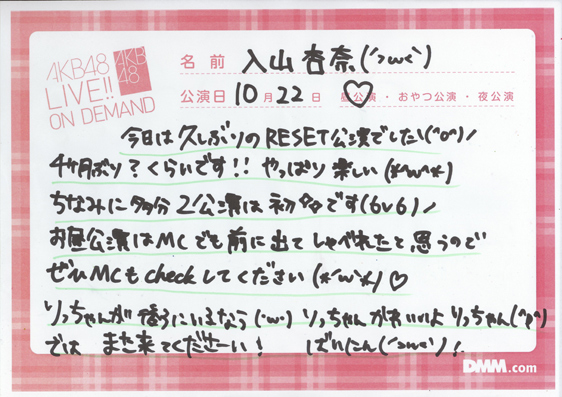 AKB48
LIVE!!
ON DEMAND
AKB
48
名前 入山杏奈(´>ω<`)
公演日 10月22日 昼公演・おやつ公演・夜公演
今日は久しぶりのRESET公演でした\(^o^)/
4ヶ月ぶり?くらいです!! やっぱり楽しい(*´w`*)
ちなみに多分2公演は初々です(6v6)ノ
お昼公演はMCでも前に出てしゃべれたと思うので
ぜひMCもcheckしてください(*´w`*)♡
りっちゃんが横にいるなう(´w`) りっちゃんかわいいよりっちゃん(^p^)
では また来てくださーい! ばいたん(´>w<`)!
DMM.com